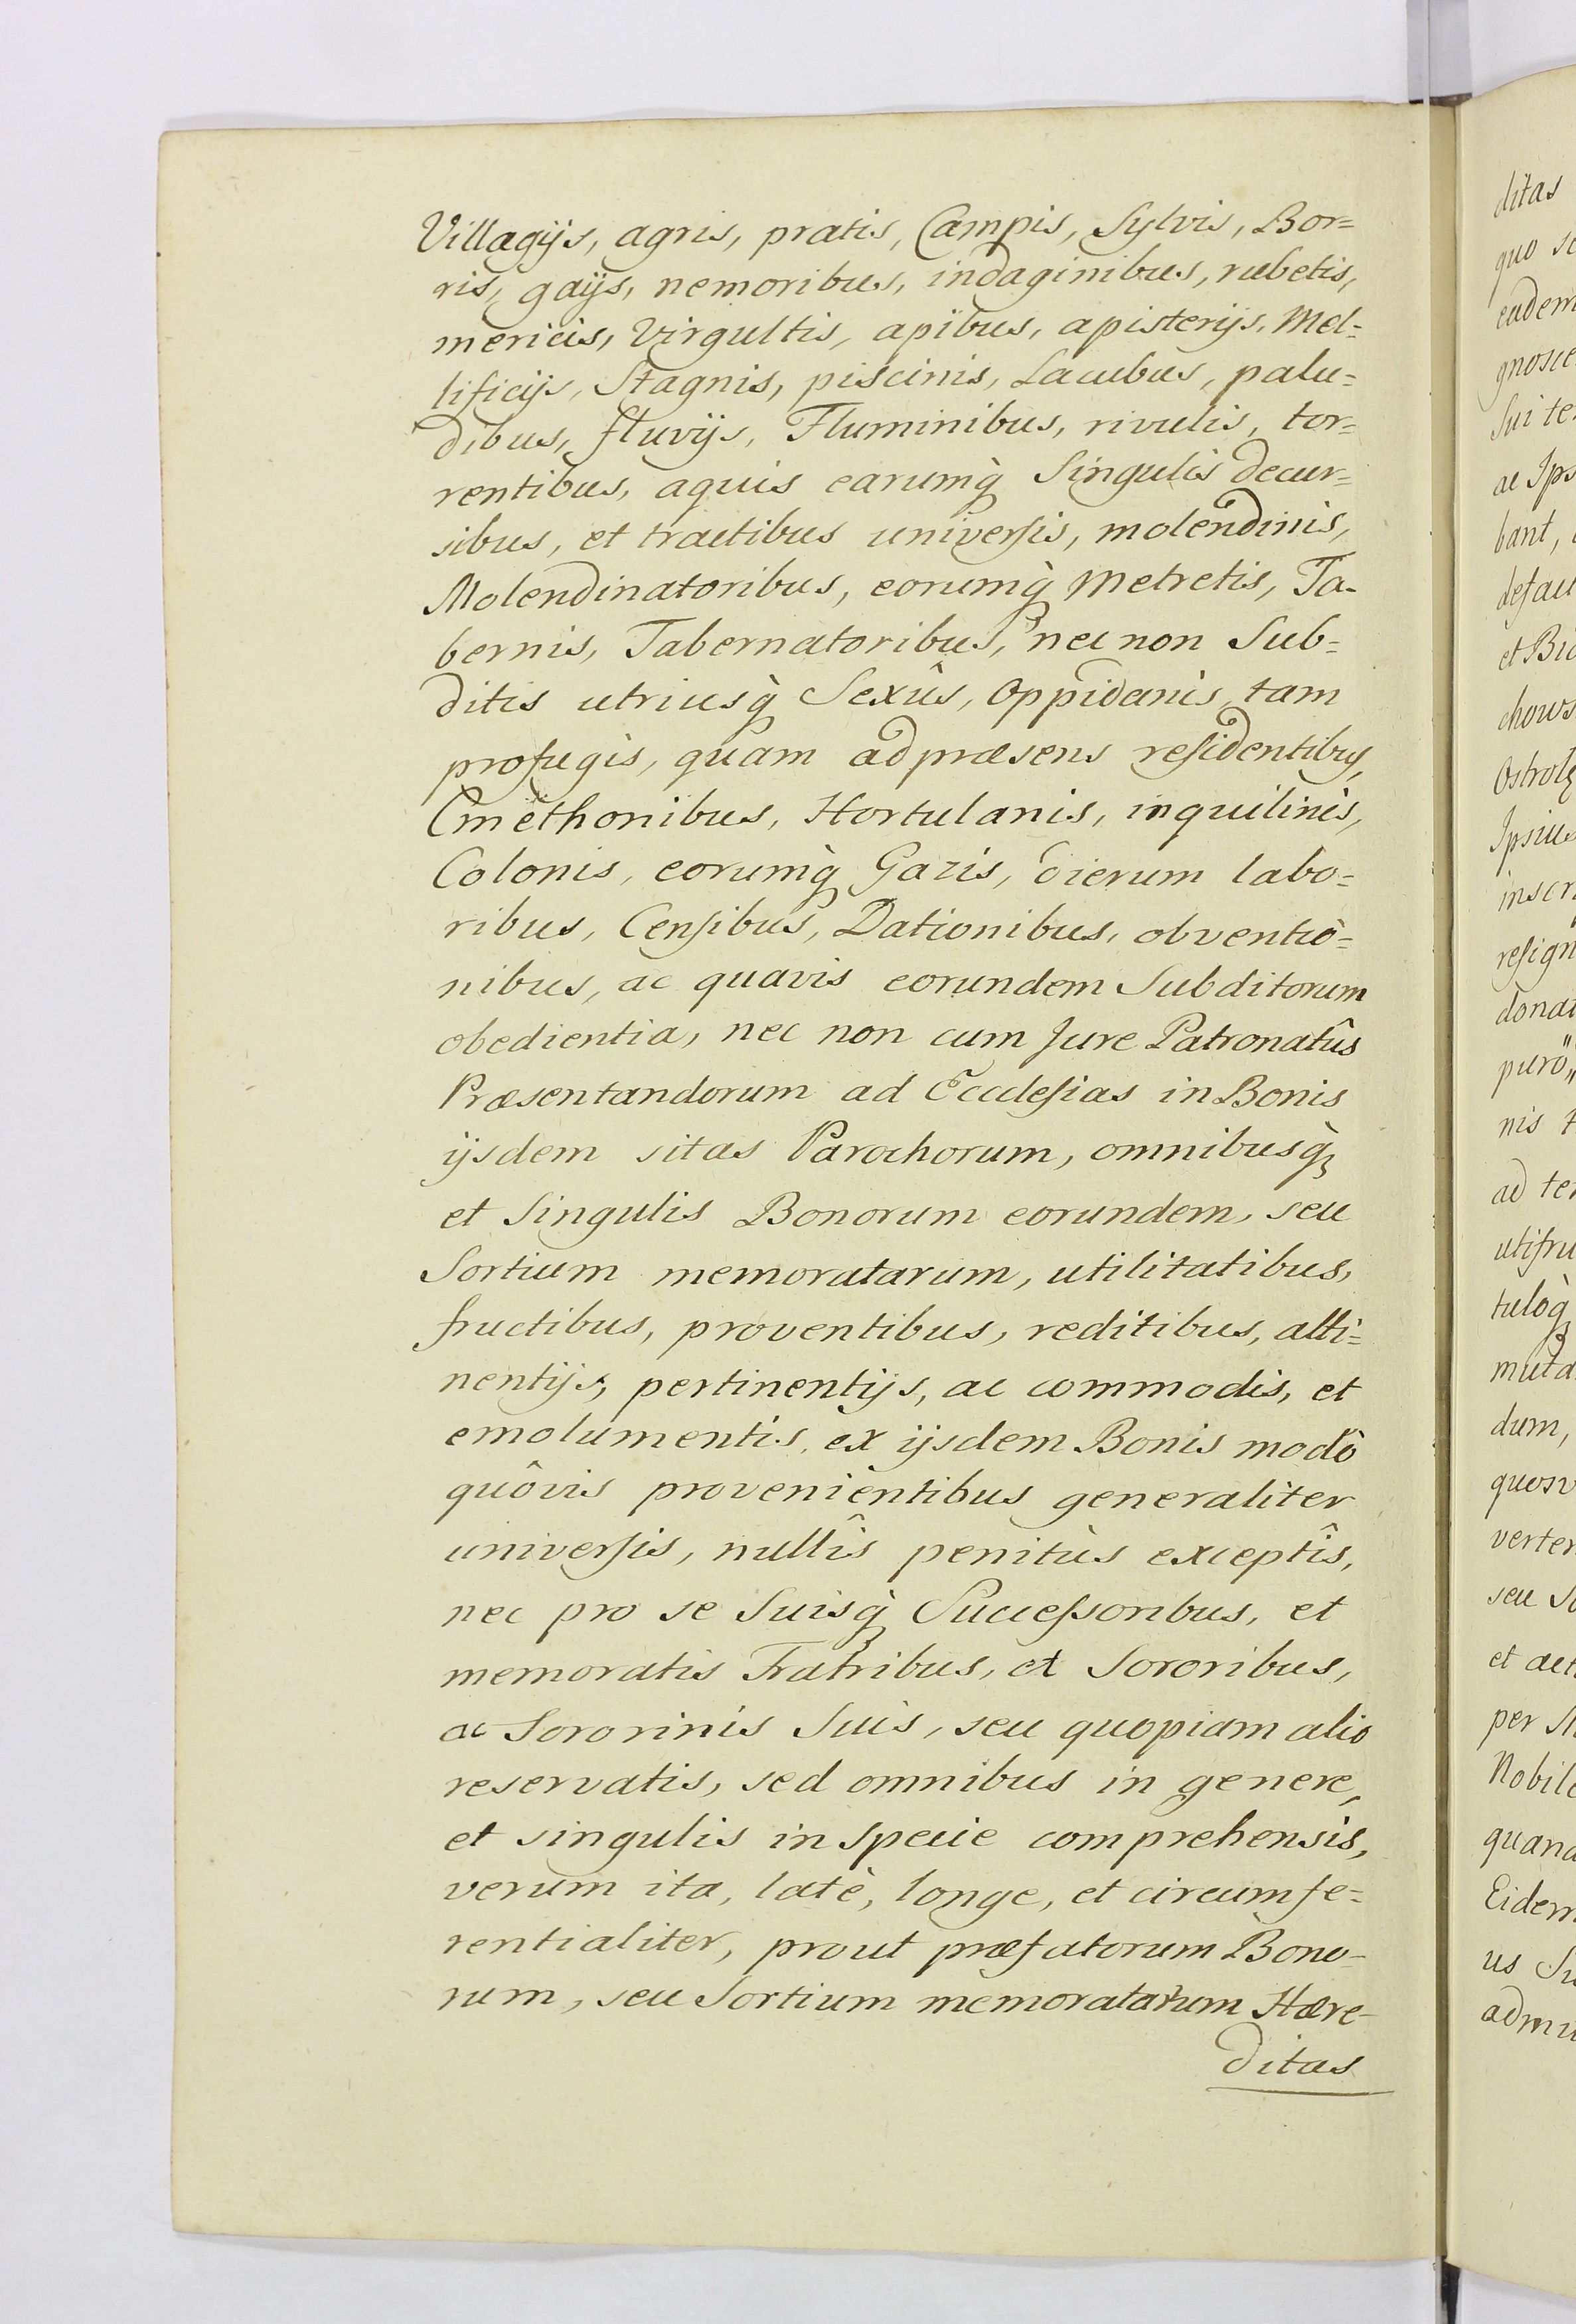 Villagijs, agris, pratis, Campis, Sylvis, Bor=
ris, gaijs, nemoribus, indaginibus, rubetis,
mericis, Virgultis, apibus, apisterijs, Mel=
lificijs, Stagnis, piscinis, Lacubus, palu=
dibus, fluvijs, Fluminibus, rivulis, tor=
rentibus, aquis earumq̀ Singulis decur=
sibus, et tractibus universis, molendinis,
Molendinatoribus, eorumq̀ Metretis, Ta-
bernis, Tabernatoribus, nec non Sub=
ditis utriusq̀ Sexûs, Oppidanis, tam
profugis, quam ad præsens residentibus,
Cmethonibus, Hortulanis, inquilinis,
Colonis, eorumq̀ Gazis, dierum labo=
ribus, Censibus, Dationibus, obventio=
nibus, ac quavis eorundem Subditorum
obedientia, nec non cum Jure Patronatûs
Præsentandorum ad Ecclesias in Bonis
ijsdem sitas Parochorum, omnibusq̀
et Singulis Bonorum eorundem, seu
Sortium memoratarum, utilitatibus,
fructibus, proventibus, reditibus, atti=
nentijs, pertinentijs, ac commodis, et
emolumentis, ex ijsdem Bonis modô
quôvis provenientibus generaliter
universis, nullîs penitùs exceptîs,
nec pro se Suisq̀ Successoribus, et
memoratis Fratribus, et Sororibus,
ac Sororinis Suis, seu quopiam alio
reservatis, sed omnibus in genere,
et singulis in Specie comprehensis,
verum ita, latè, longe, et circumfe=
rentialiter, prout præfatorum Bono-
rum, seu Sortium memoratarum Hære-
ditas
ditas
quo
eadem
ac
bant,
et
Ipsius
nis
ad
dum,
seu
et
per
us